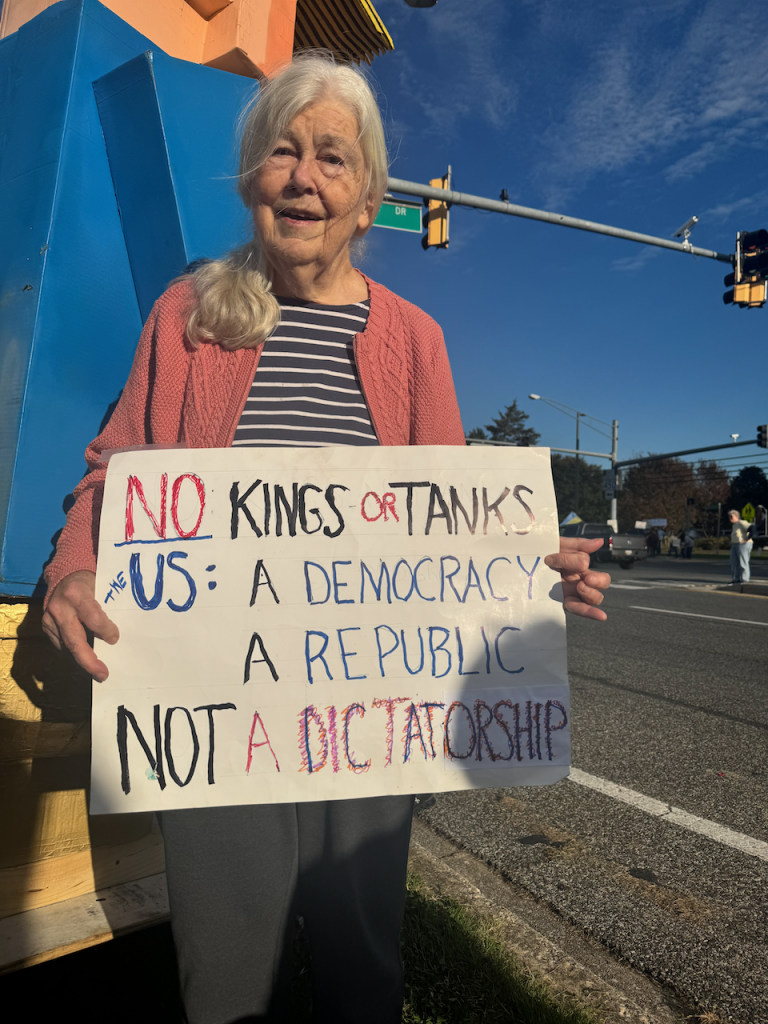 DR
NO KINGS OR TANKS
THE US: A DEMOCRACY
A REPUBLIC
NOT A DICTATORSHIP